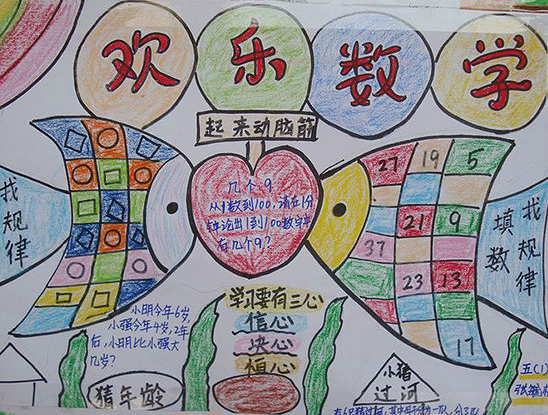 欢乐数学
起来动脑筋
找规律
几个9
从1数到100,请在1分
钟论出1到100数字中
有几个9?
27 19 5
21 9
37
23 13
17
填数
找规律
小明今年6岁,
小强今年4岁,2年
后,小明比小强大
几岁?
猜年龄
学习要有三心
信心
决心
恒心
小猪
过河
五(1)